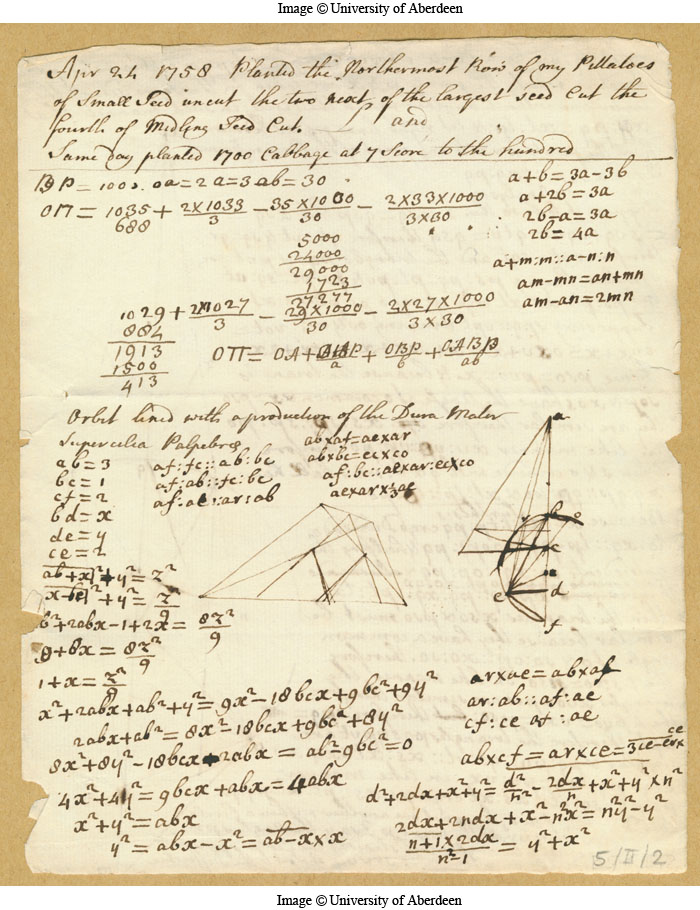 Image © University of Aberdeen
Apr 24 1758 Planted the Northermost Row of my Pittatoes
of Small Seed uncut the two next of the largest seed Cut the
fourth of Midling Seed Cut. and
Same day planted 1700 Cabbage at 7 Score to the hundred
BP = 1000. oa = 2 a = 3 ab = 30
OΠ = 1035 + 2×1033/3 − 35×1000/30 − 2×33×1000/3×30
688
5000
24000
29000
1723
27277
a+b = 3a−3b
a+2b = 3a
2b−a = 3a
2b = 4a
a+m:m::a−n:n
am−mn=an+mn
am−an=2mn
1029 + 2×1027/3 − 29×1000/30 − 2×27×1000/3×30
884
1913
1500
413
OΠ = OA + OAP/a + OBP/b + OABP/ab
Orbit lined with a production of the Dura Mater
Supercilia Palpebræ
ab = 3
bc = 1
cf = 2
bd = x
de = y
ce = 2
af:fc::ab:bc
af:ab::fc:bc
af:ae::ar:ab
ab×af=ae×ar
ab×bc=ec×co
af:bc::ae×ar:ec×co
ae×ar×3ae
a
r
b
o
c
a
e
d
f
ab+x|²+y² = z²
x−bc|²+y² = z²/9
b²+2abx−1+2x = 8z²/9
8+8x = 8z²/9
1+x = z²/9
x²+2abx+ab²+y² = 9x²−18bcx+9bc²+9y²
2abx+ab² = 8x²−18bcx+9bc²+8y²
8x²+8y²−18bcx−2abx = ab²−9bc²=0
4x²+4y² = 9bcx+abx = 4abx
x²+y² = abx
y² = abx−x² = ab−x×x
ar×ae = ab×af
ar:ab::af:ae
cf:ce af:ae
ab×cf = ar×ce =
d²+2dx+x²+y² = d²/n² − 2dx/n + x²+y²×n²
2dx+2ndx+x²−n²x² = n²y²−y²
n+1×2dx/n²−1 = y²+x²
5/II/2
Image © University of Aberdeen